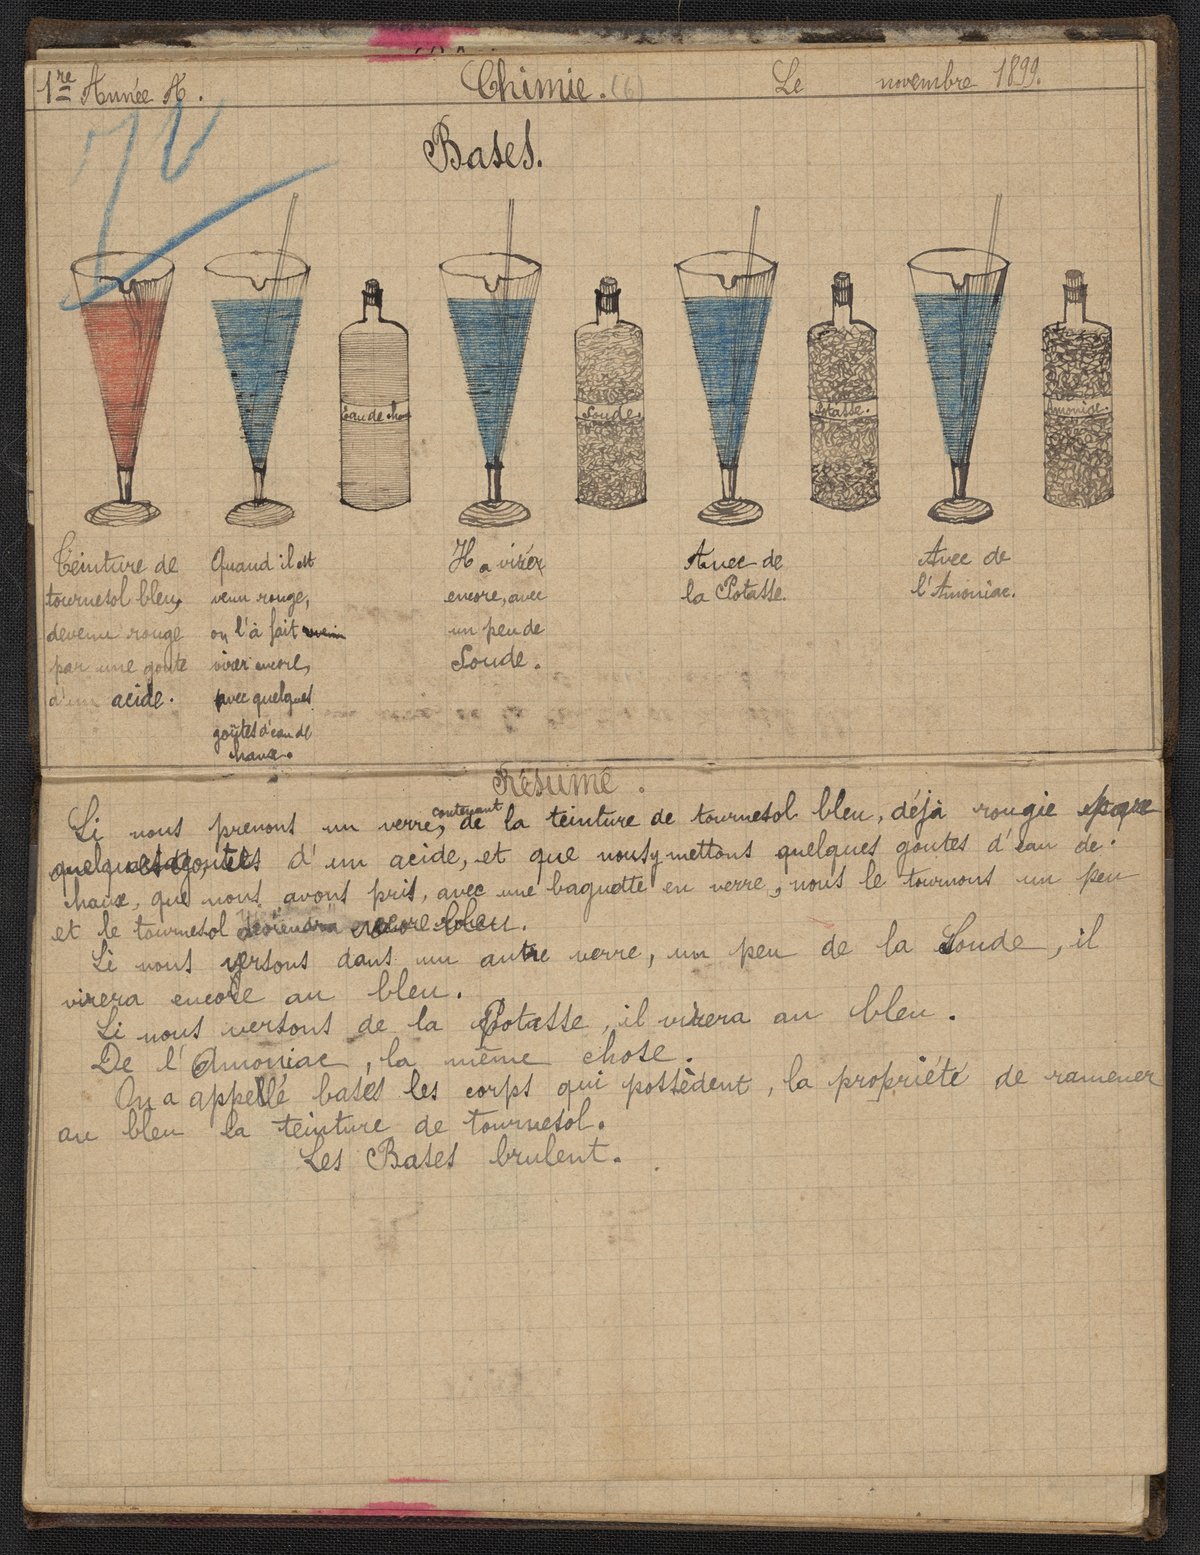 1re Année A.
Chimie. (6)
Le novembre 1899.
Bases.
Eau de chaux
Soude.
Potasse.
Amoniac.
Teinture de
tournesol bleu,
devenu rouge
par une goute
d'un acide.
Quand il est
venu rouge,
on l'à fait
virer encore,
avec quelques
goûtes d'eau de
chaux.
Il a virer
encore, avec
un peu de
Soude.
Avec de
la Potasse.
Avec de
l'Amoniac.
Résumé.
Si nous prenons un verre, contenant de la teinture de tournesol bleu, déjà rougie
quelques goutes d'un acide, et que nous y mettons quelques goutes d'eau de
chaux, que nous avons pris, avec une baguette en verre, nous le tournons un peu
et le tournesol deviendra encore bleu.
Si nous versons dans un autre verre, un peu de la Soude, il
virera encore au bleu.
Si nous versons de la Potasse, il virera au bleu.
De l'Amoniac, la même chose.
On a appellé bases les corps qui possèdent, la propriété de ramener
au bleu la teinture de tournesol.
Les Bases brulent.